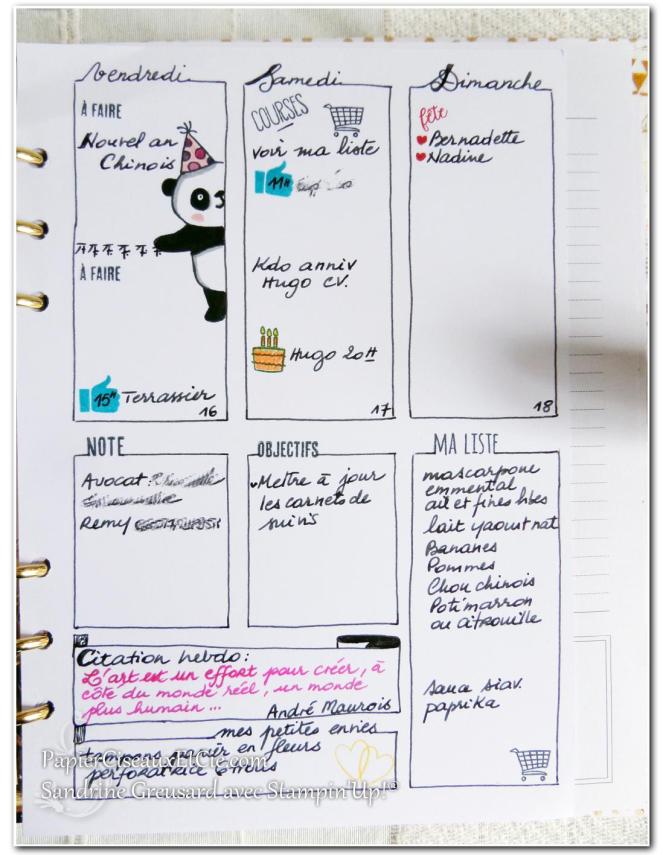 Vendredi
À FAIRE
Nouvel an
Chinois
À FAIRE
15H Terrassier
16
Samedi
COURSES
voir ma liste
11H
Kdo anniv
Hugo CV.
Hugo 20H
17
Dimanche
fête
Bernadette
Nadine
18
NOTE
Avocat:
Remy
OBJECTIFS
Mettre à jour
les carnets de
suivis
MA LISTE
mascarpone
emmental
ail et fines hbes
lait yaourt nat
Bananes
Pommes
Chou chinois
Potimarron
ou citrouille
paprika
Citation hebdo:
L'art est un effort pour créer, à
côte du monde réel, un monde
plus humain ...
André Maurois
mes petites envies
en fleurs
perforatrice
PapierCiseauxEtCie.com
Sandrine Greusard avec Stampin'Up!®